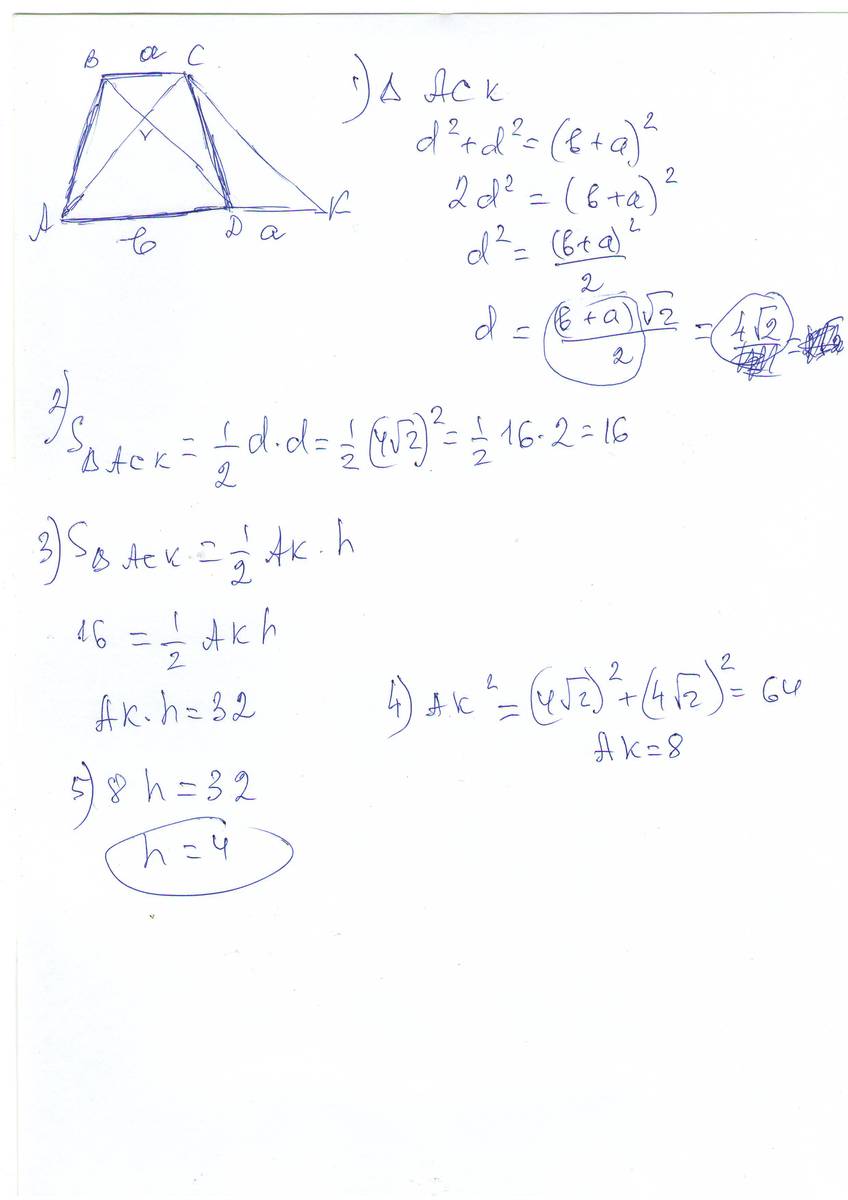 B a C
A D K
в a
1) Δ ACK
d² + d² = (в + a)²
2d² = (в + a)²
d² = (в + a)² / 2
d = (в + a)√2 / 2 = 4√2
2) S Δ ACK = 1/2 d · d = 1/2 (4√2)² = 1/2 16 · 2 = 16
3) S Δ ACK = 1/2 AK · h
16 = 1/2 AK h
AK · h = 32
4) AK² = (4√2)² + (4√2)² = 64
AK = 8
5) 8 h = 32
h = 4